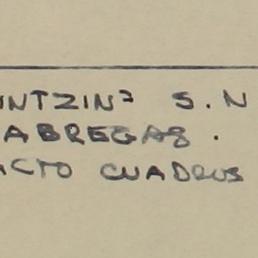 UNTZIN² S.N
ABREGAS.
ACTO CUADRUS